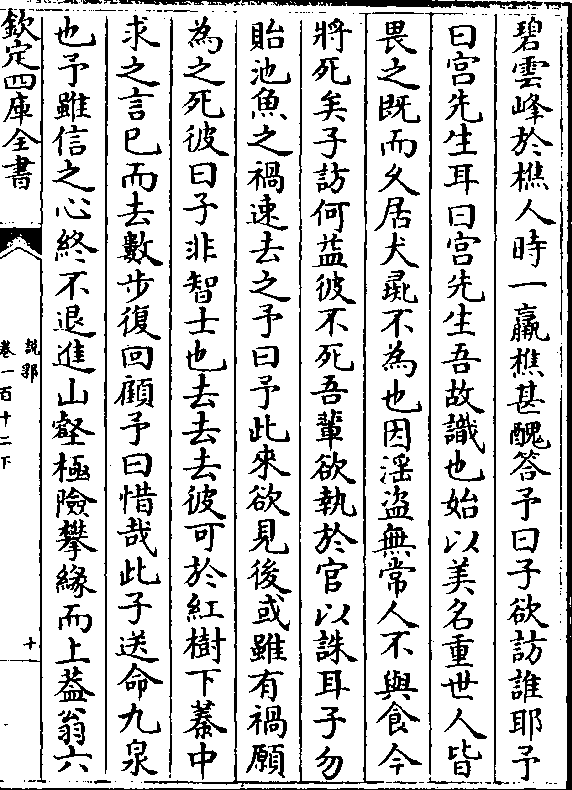 碧雲峰於樵人時一羸樵甚醜答予曰子欲訪誰耶予
曰宫先生耳曰宫先生吾故識也始以美名重世人皆
畏之既而久居犬彘不為也因淫盗無常人不與食今
將死矣子訪何益彼不死吾輩欲執於官以誅耳子勿
貽池魚之禍速去之予曰予此來欲見後或雖有禍願
為之死彼曰子非智士也去去去彼可於紅樹下蓁中
求之言已而去數步復回顧予曰惜哉此子送命九泉
也予雖信之心終不退進山壑極險攀緣而上葢翁六
欽定四庫全書
説郛
卷一百十二下
十